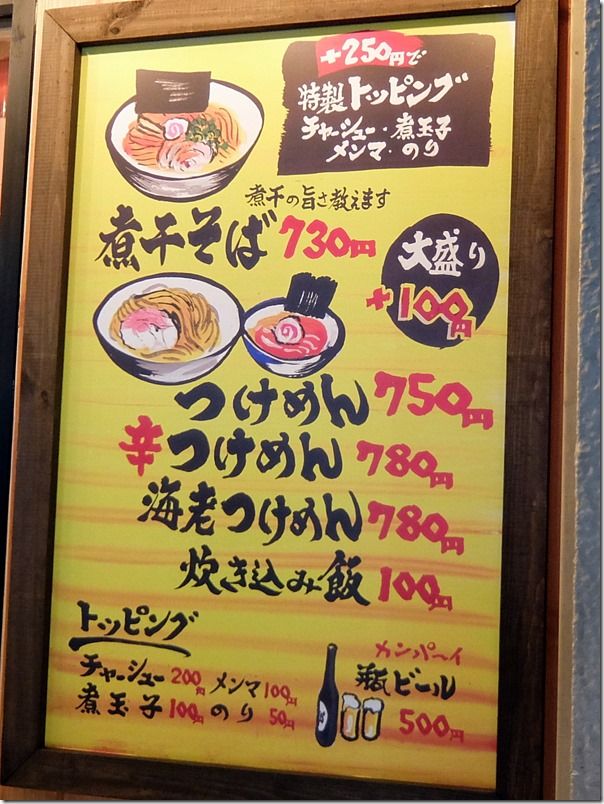 +250円で
特製トッピング
チャーシュー・煮玉子
メンマ・のり
煮干の旨さ教えます
煮干そば 730円
大盛り
+100円
つけめん 750円
辛つけめん 780円
海老つけめん 780円
炊き込み飯 100円
トッピング
チャーシュー 200円 メンマ 100円
煮玉子 100円 のり 50円
カンパ〜イ
瓶ビール
500円